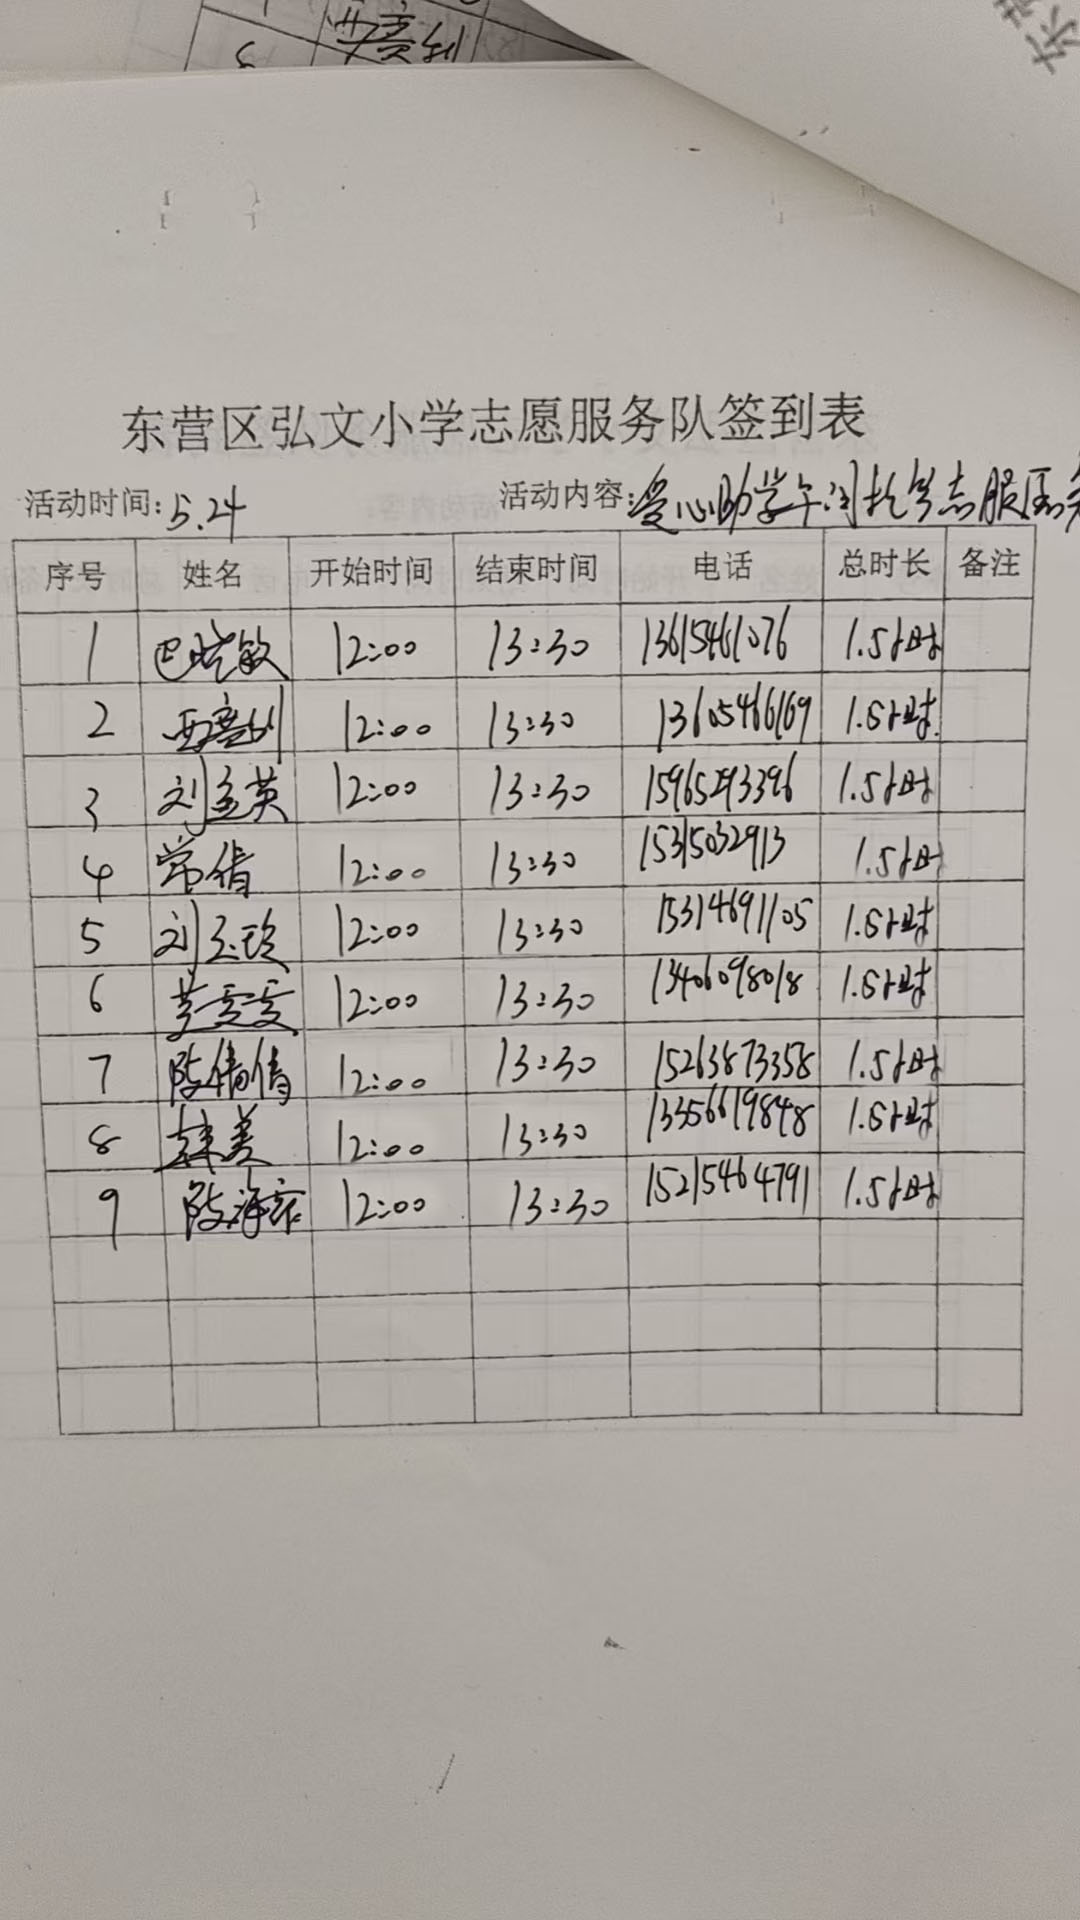 东营区弘文小学志愿服务队签到表
活动时间: 5.24 活动内容: 爱心助学午间托管志愿服务
序号 姓名 开始时间 结束时间 电话 总时长 备注
1 巴晓敏 12:00 13:30 13615461076 1.5小时
2 12:00 13:30 13605466169 1.5小时
3 刘孟英 12:00 13:30 15965293396 1.5小时
4 常倩 12:00 13:30 15315032913 1.5小时
5 刘玉玲 12:00 13:30 15314691105 1.5小时
6 12:00 13:30 13406098018 1.5小时
7 陈倩倩 12:00 13:30 15263873358 1.5小时
8 韩美 12:00 13:30 13356619848 1.5小时
9 陈海 12:00 13:30 15215464791 1.5小时